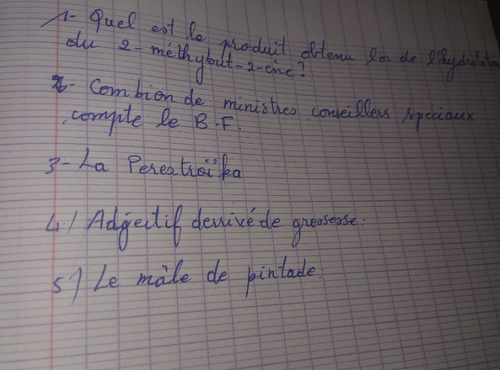 1- Quel est le produit obtenu lor de l'hydratation
du 2-méthybut-2-ène?
2- Combien de ministres conseillers speciaux
compte le B.F.
3- La Perestroïka
4/ Adjectif derrivé de gressesse.
5/ Le mâle de pintade.